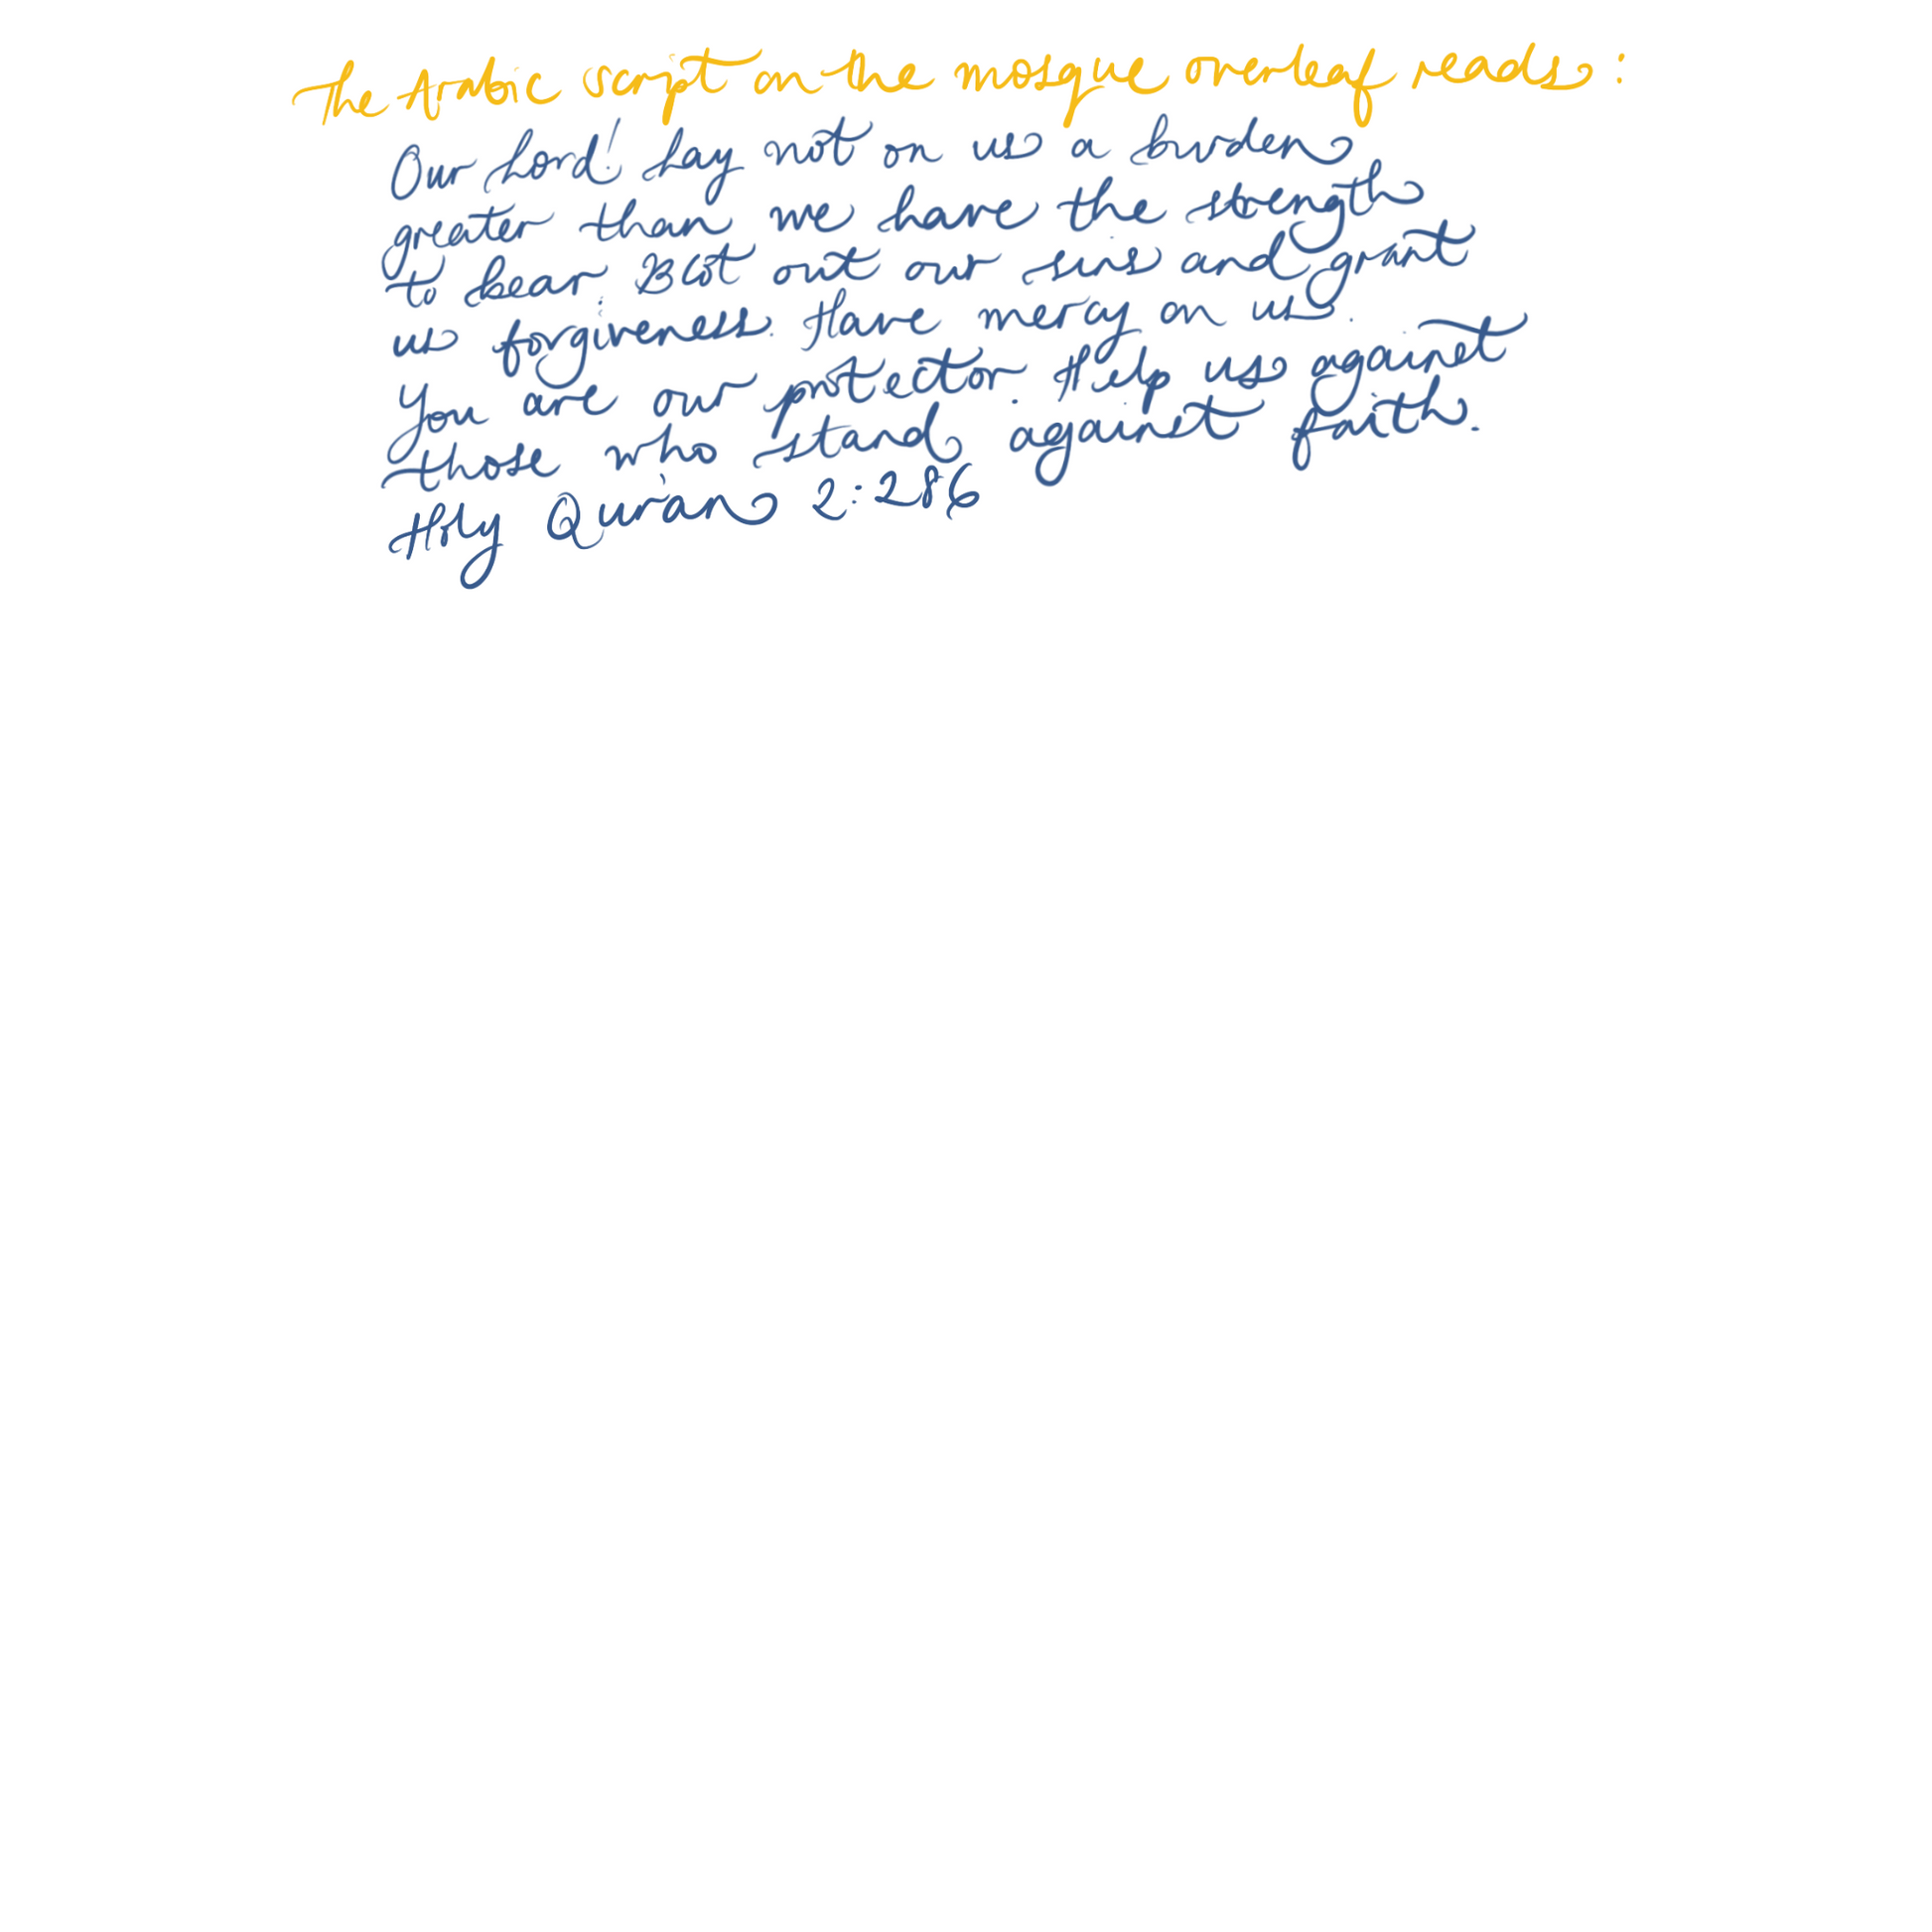 The Arabic script on the mosque overleaf reads:
Our Lord! Lay not on us a burden
greater than we have the strength
to bear. Blot out our sins and grant
us forgiveness. Have mercy on us.
You are our protector. Help us against
those who stand against faith.
Holy Qur'an 2:286